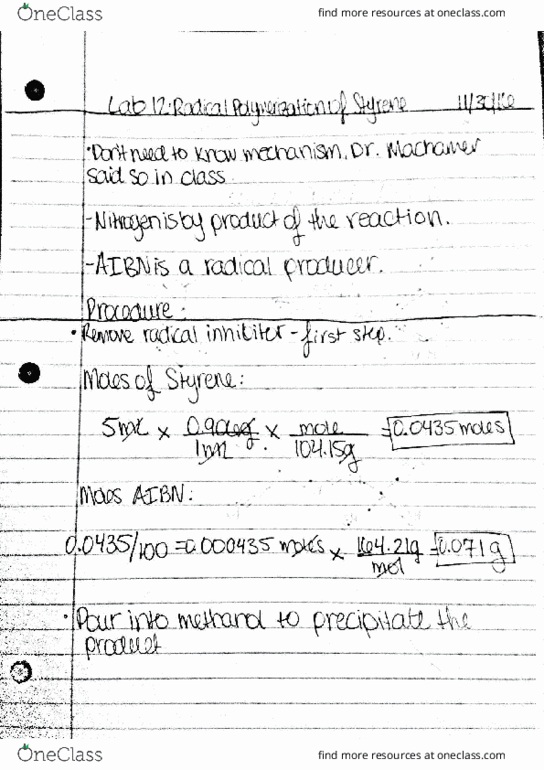 OneClass find more resources at oneclass.com
Lab 12: Radical Polymerization of Styrene 11/30/16
• Don't need to know mechanism, Dr. Machamer
said so in class
- Nitrogen is by product of the reaction.
- AIBN is a radical producer.
Procedure:
• Remove radical inhibiter - first step.
Moles of Styrene:
5mL x 0.906g/1mL x mole/104.15g = 0.0435 moles
Moles AIBN:
0.0435/100 = 0.000435 moles x 164.21g/mol = 0.071g
• Pour into methanol to precipitate the
product
OneClass find more resources at oneclass.com